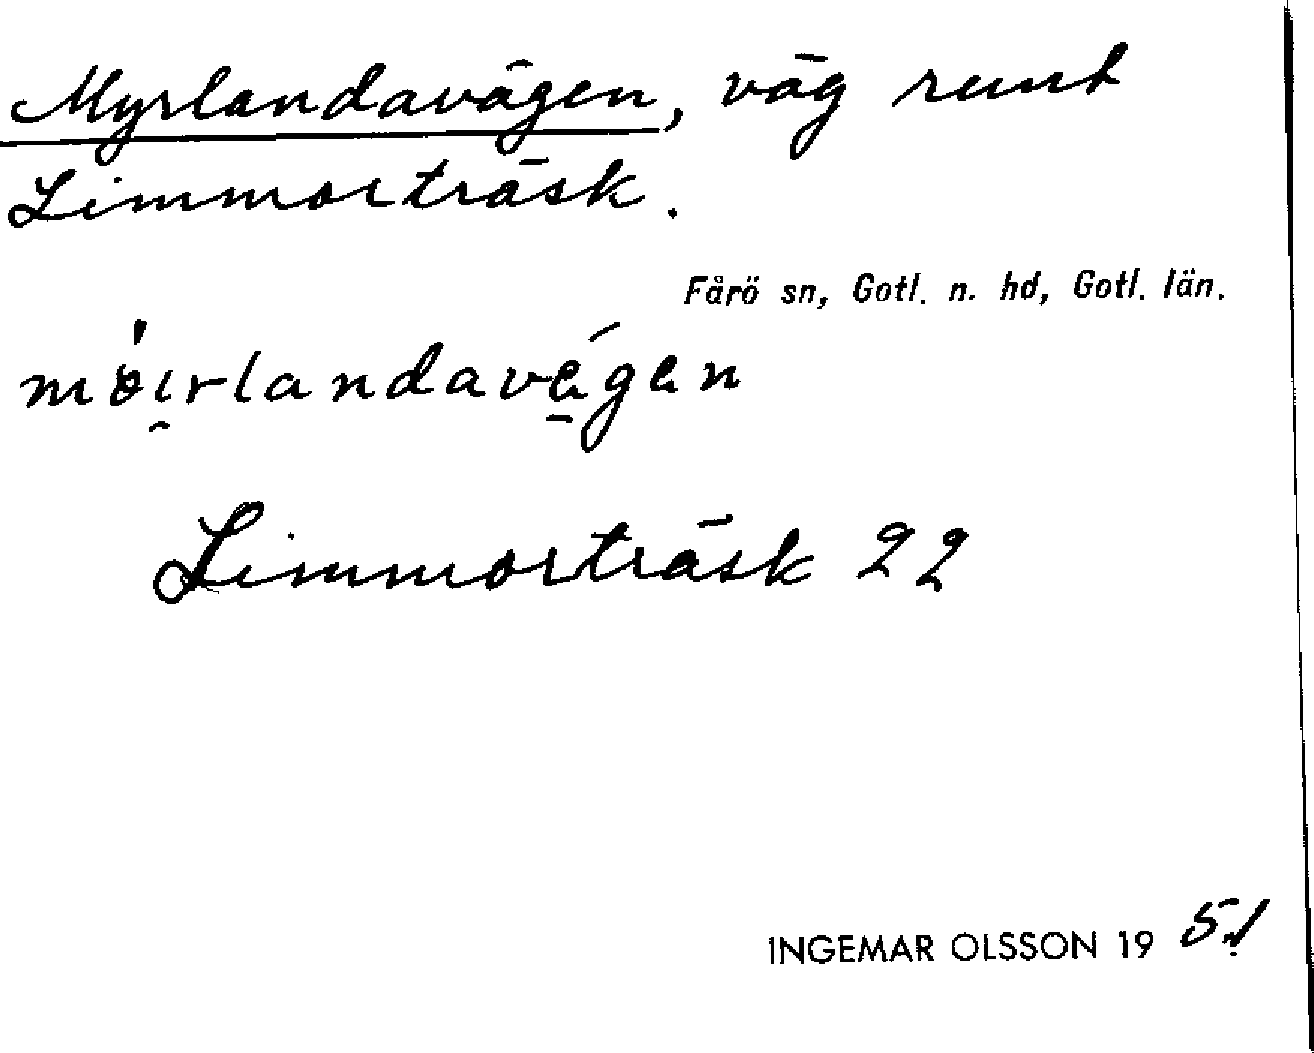 Myrlandavägen, väg runt
Limmorträsk.
Fårö sn, Gotl. n. hd, Gotl. län.
Limmorträsk 22
INGEMAR OLSSON 19 51